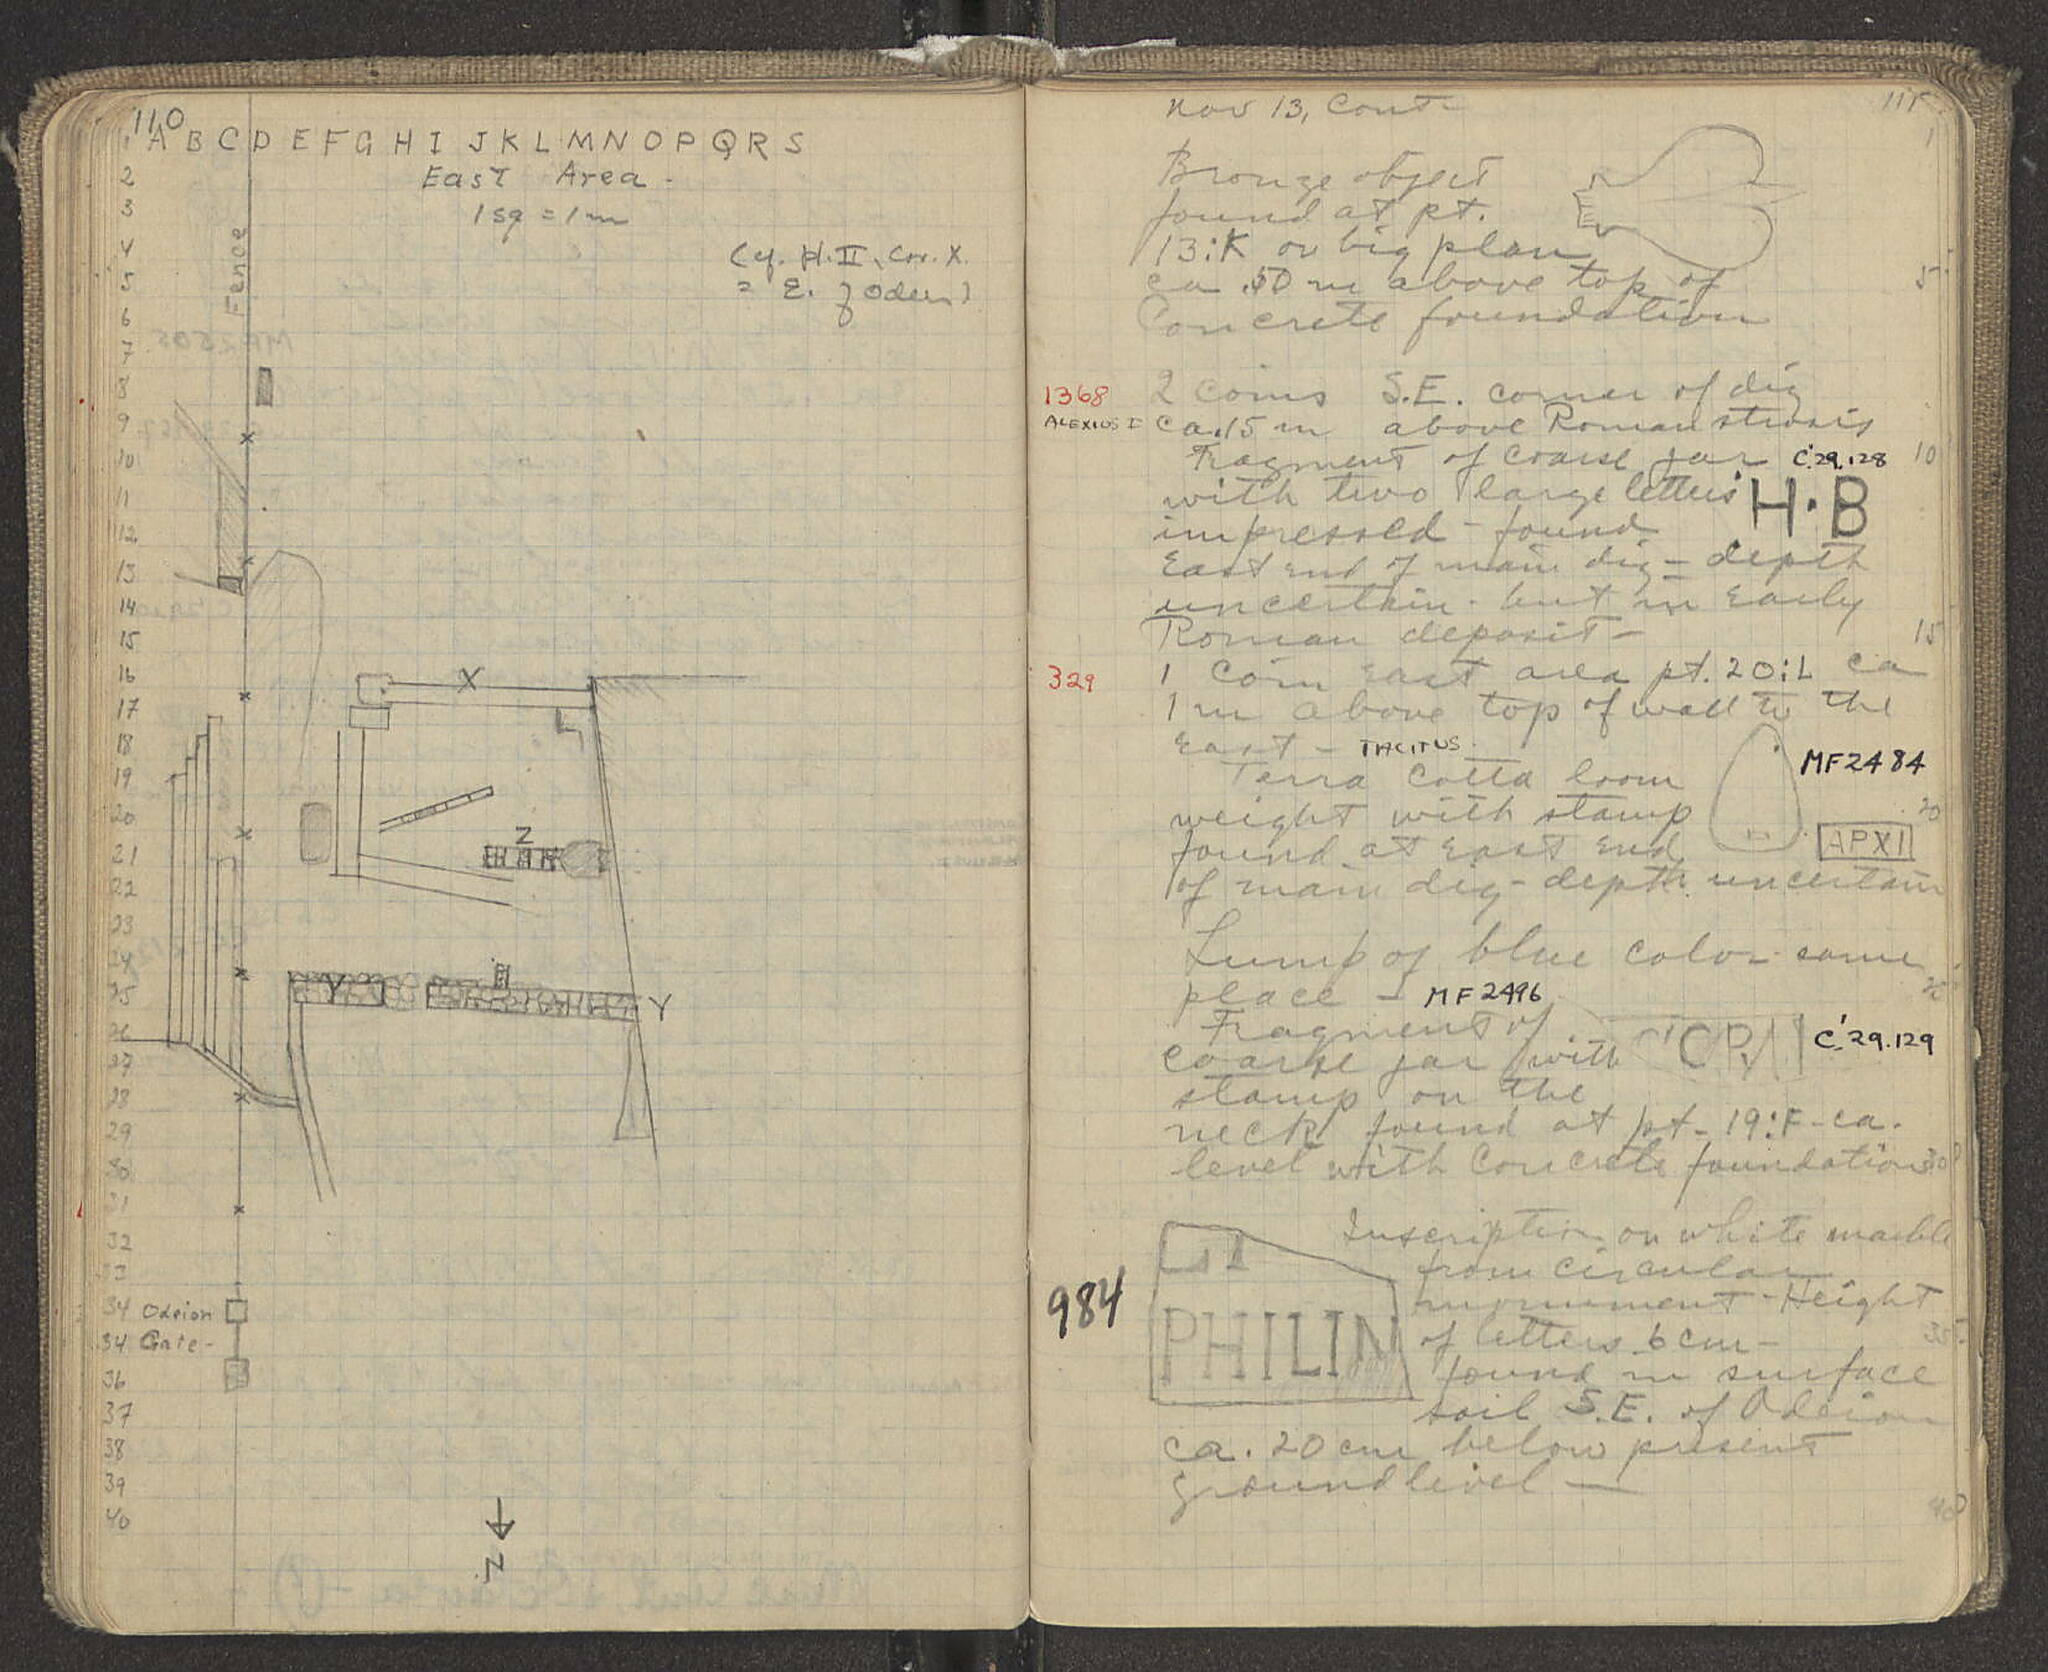 110
A B C D E F G H I J K L M N O P Q R S
1
2
East Area -
3
1 sq = 1 m
4
(cf. H. II, Cor. X.
5
= E. of Odeion)
Fence
6
7
8
9
10
11
12
13
14
15
16
X
17
L
18
19
20
Z
21
22
23
24
25
Y
Y
26
27
28
29
30
31
32
33
34 Odeion
34 Gate -
36
37
38
39
40
N
Nov 13, Cont-
111
1
Bronze object
found at pt.
13:K on big plan
ca .50 m above top of
5
Concrete foundation
1368
2 coins S.E. corner of dig
ALEXIUS I
ca .15 m above Roman strosis
Fragment of coarse jar C.29.128
10
with two large letters H·B
impressed - found
East end of main dig - depth
uncertain - but in Early
Roman deposit -
15
329
1 Coin East area pt. 20:L ca
1 m above top of wall to the
East - TACITUS.
Terra Cotta loom
MF2484
weight with stamp
20
found at East End
APXI
of main dig - depth uncertain
Lump of blue color - same
place - MF2496
25
Fragment of
coarse jar with
C.29.129
stamp on the
neck found at pt - 19:F - ca.
level with Concrete foundation
30
Inscription on white marble
from circular
984
monument - Height
PHILIN
of letters 6 cm -
35
found in surface
soil S.E. of Odeion
ca. 20 cm below present
ground level —
40